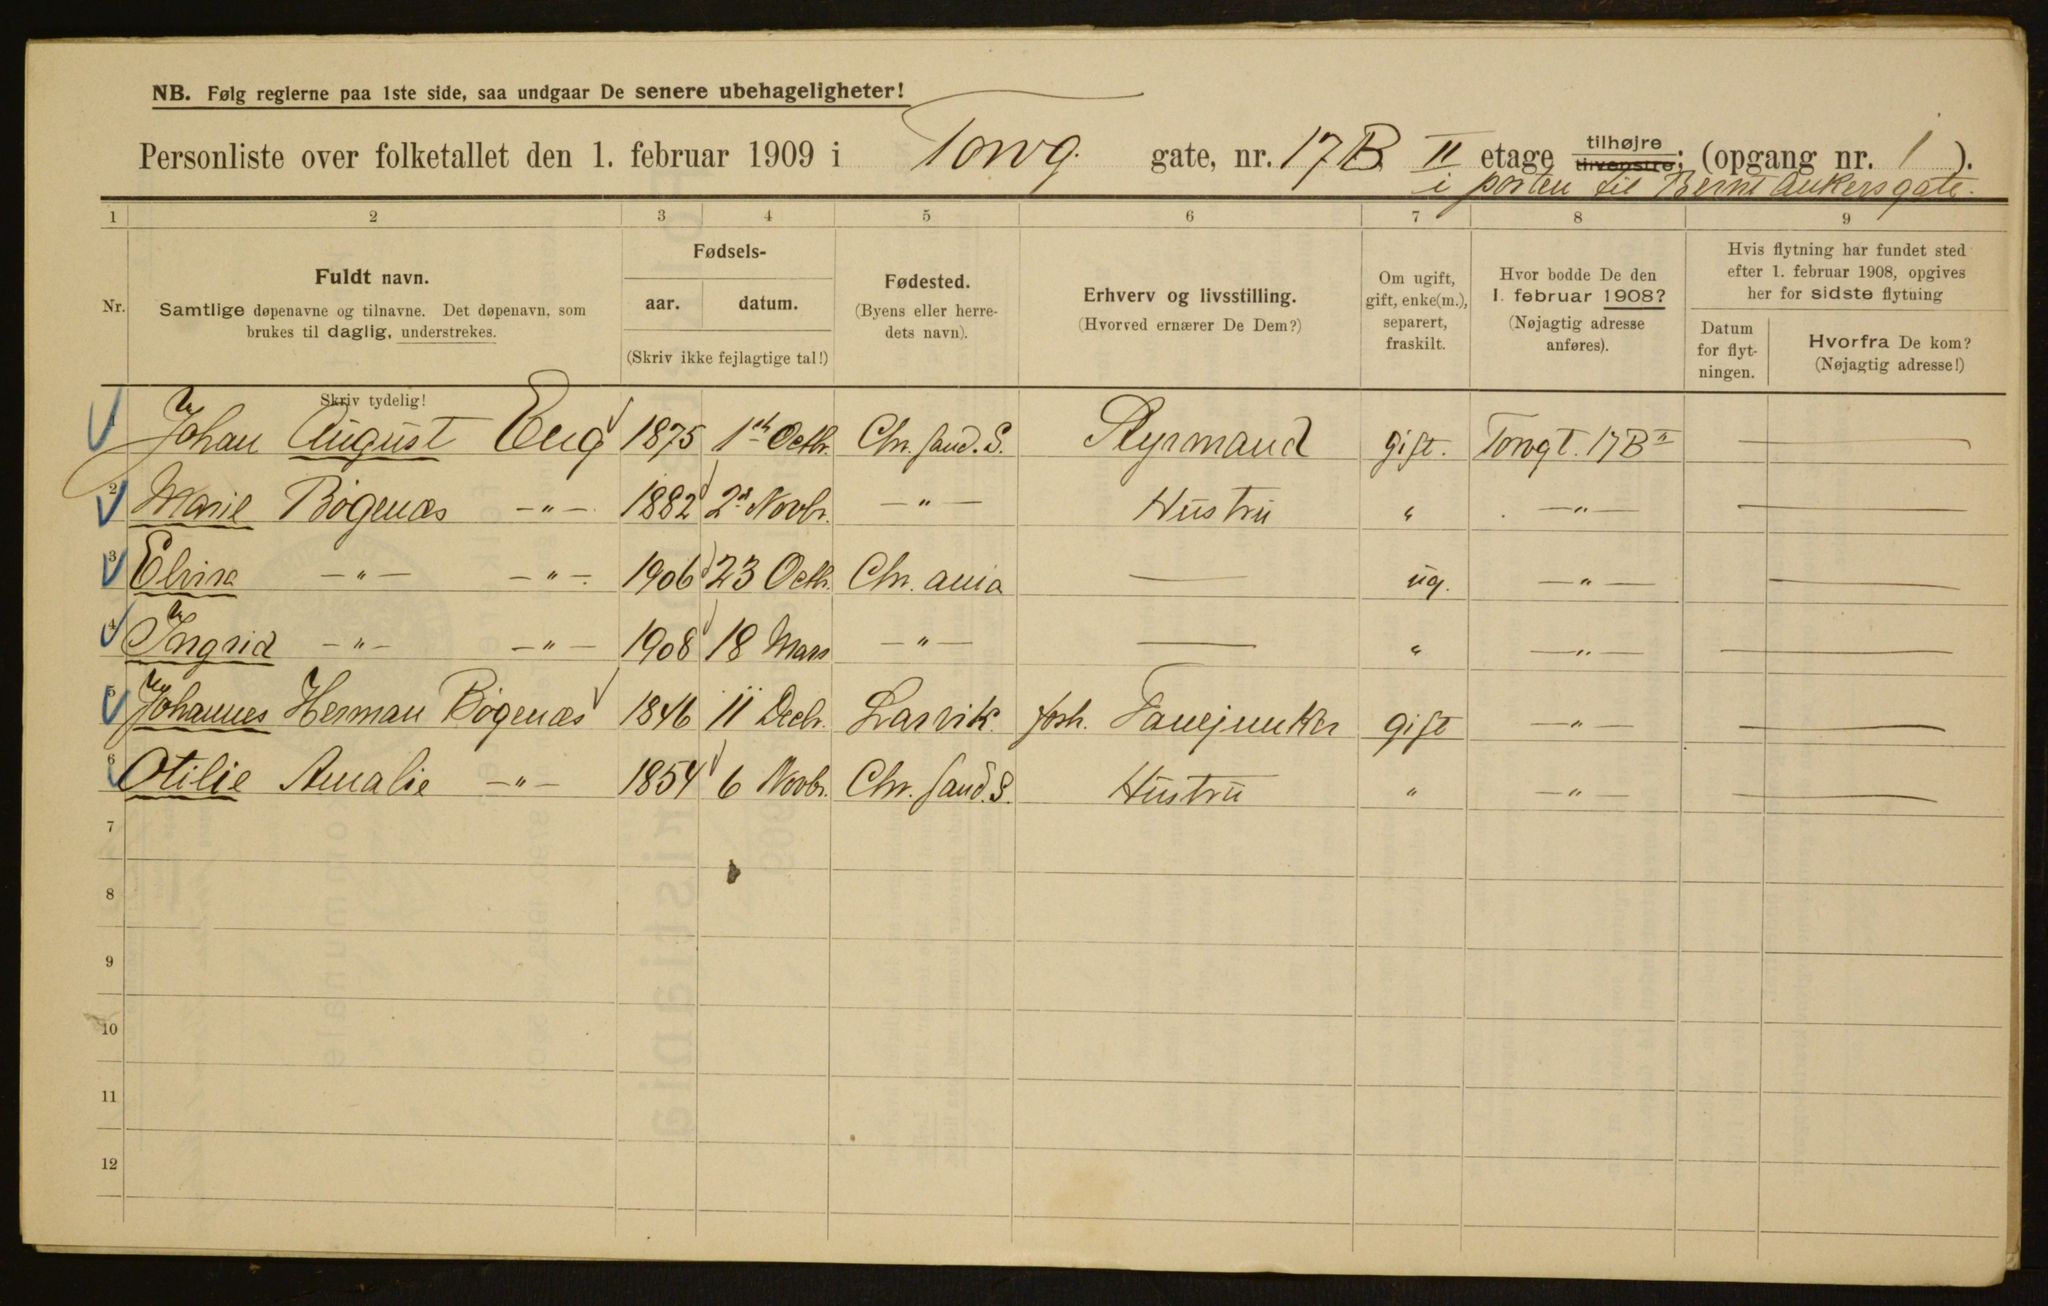 NB. Følg reglerne paa 1ste side, saa undgaar De senere ubehageligheter!
Personliste over folketallet den 1. februar 1909 i Torvg. gate, nr. 17 B II etage tilhøjre tilvenstre; (opgang nr. 1).
i porten til Bernt Ankersgate.
1 2 3 4 5 6 7 8 9
Nr.
Fuldt navn.
Samtlige døpenavne og tilnavne. Det døpenavn, som
brukes til daglig, understrekes.
Skriv tydelig!
Fødsels-
aar. datum.
(Skriv ikke fejlagtige tal!)
Fødested.
(Byens eller herre-
dets navn).
Erhverv og livsstilling.
(Hvorved ernærer De Dem?)
Om ugift,
gift, enke(m.),
separert,
fraskilt.
Hvor bodde De den
1. februar 1908?
(Nøjagtig adresse
anføres).
Hvis flytning har fundet sted
efter 1. februar 1908, opgives
her for sidste flytning
Datum
for flyt-
ningen.
Hvorfra De kom?
(Nøjagtig adresse!)
Johan August Eug 1875 1 Octb. Chr. sand. S. Styrmand gift. Torvgt. 17 B II —
2 Marie Bøgenæs —„— 1882 2 Novbr. —„— Hustru „ —„— —
3 Elvira —„— —„— 1906 23 Octb. Chr. ania — ug. —„— —
4 Ingrid —„— —„— 1908 18 Mars —„— — „ —„— —
5 Johannes Herman Bøgenæs 1846 11 Decb. Larvik forh. Fanejunker gift —„— —
6 Otilie Amalie —„— 1854 6 Novbr. Chr. sand. S. Hustru „ —„— —
7
8
9
10
11
12